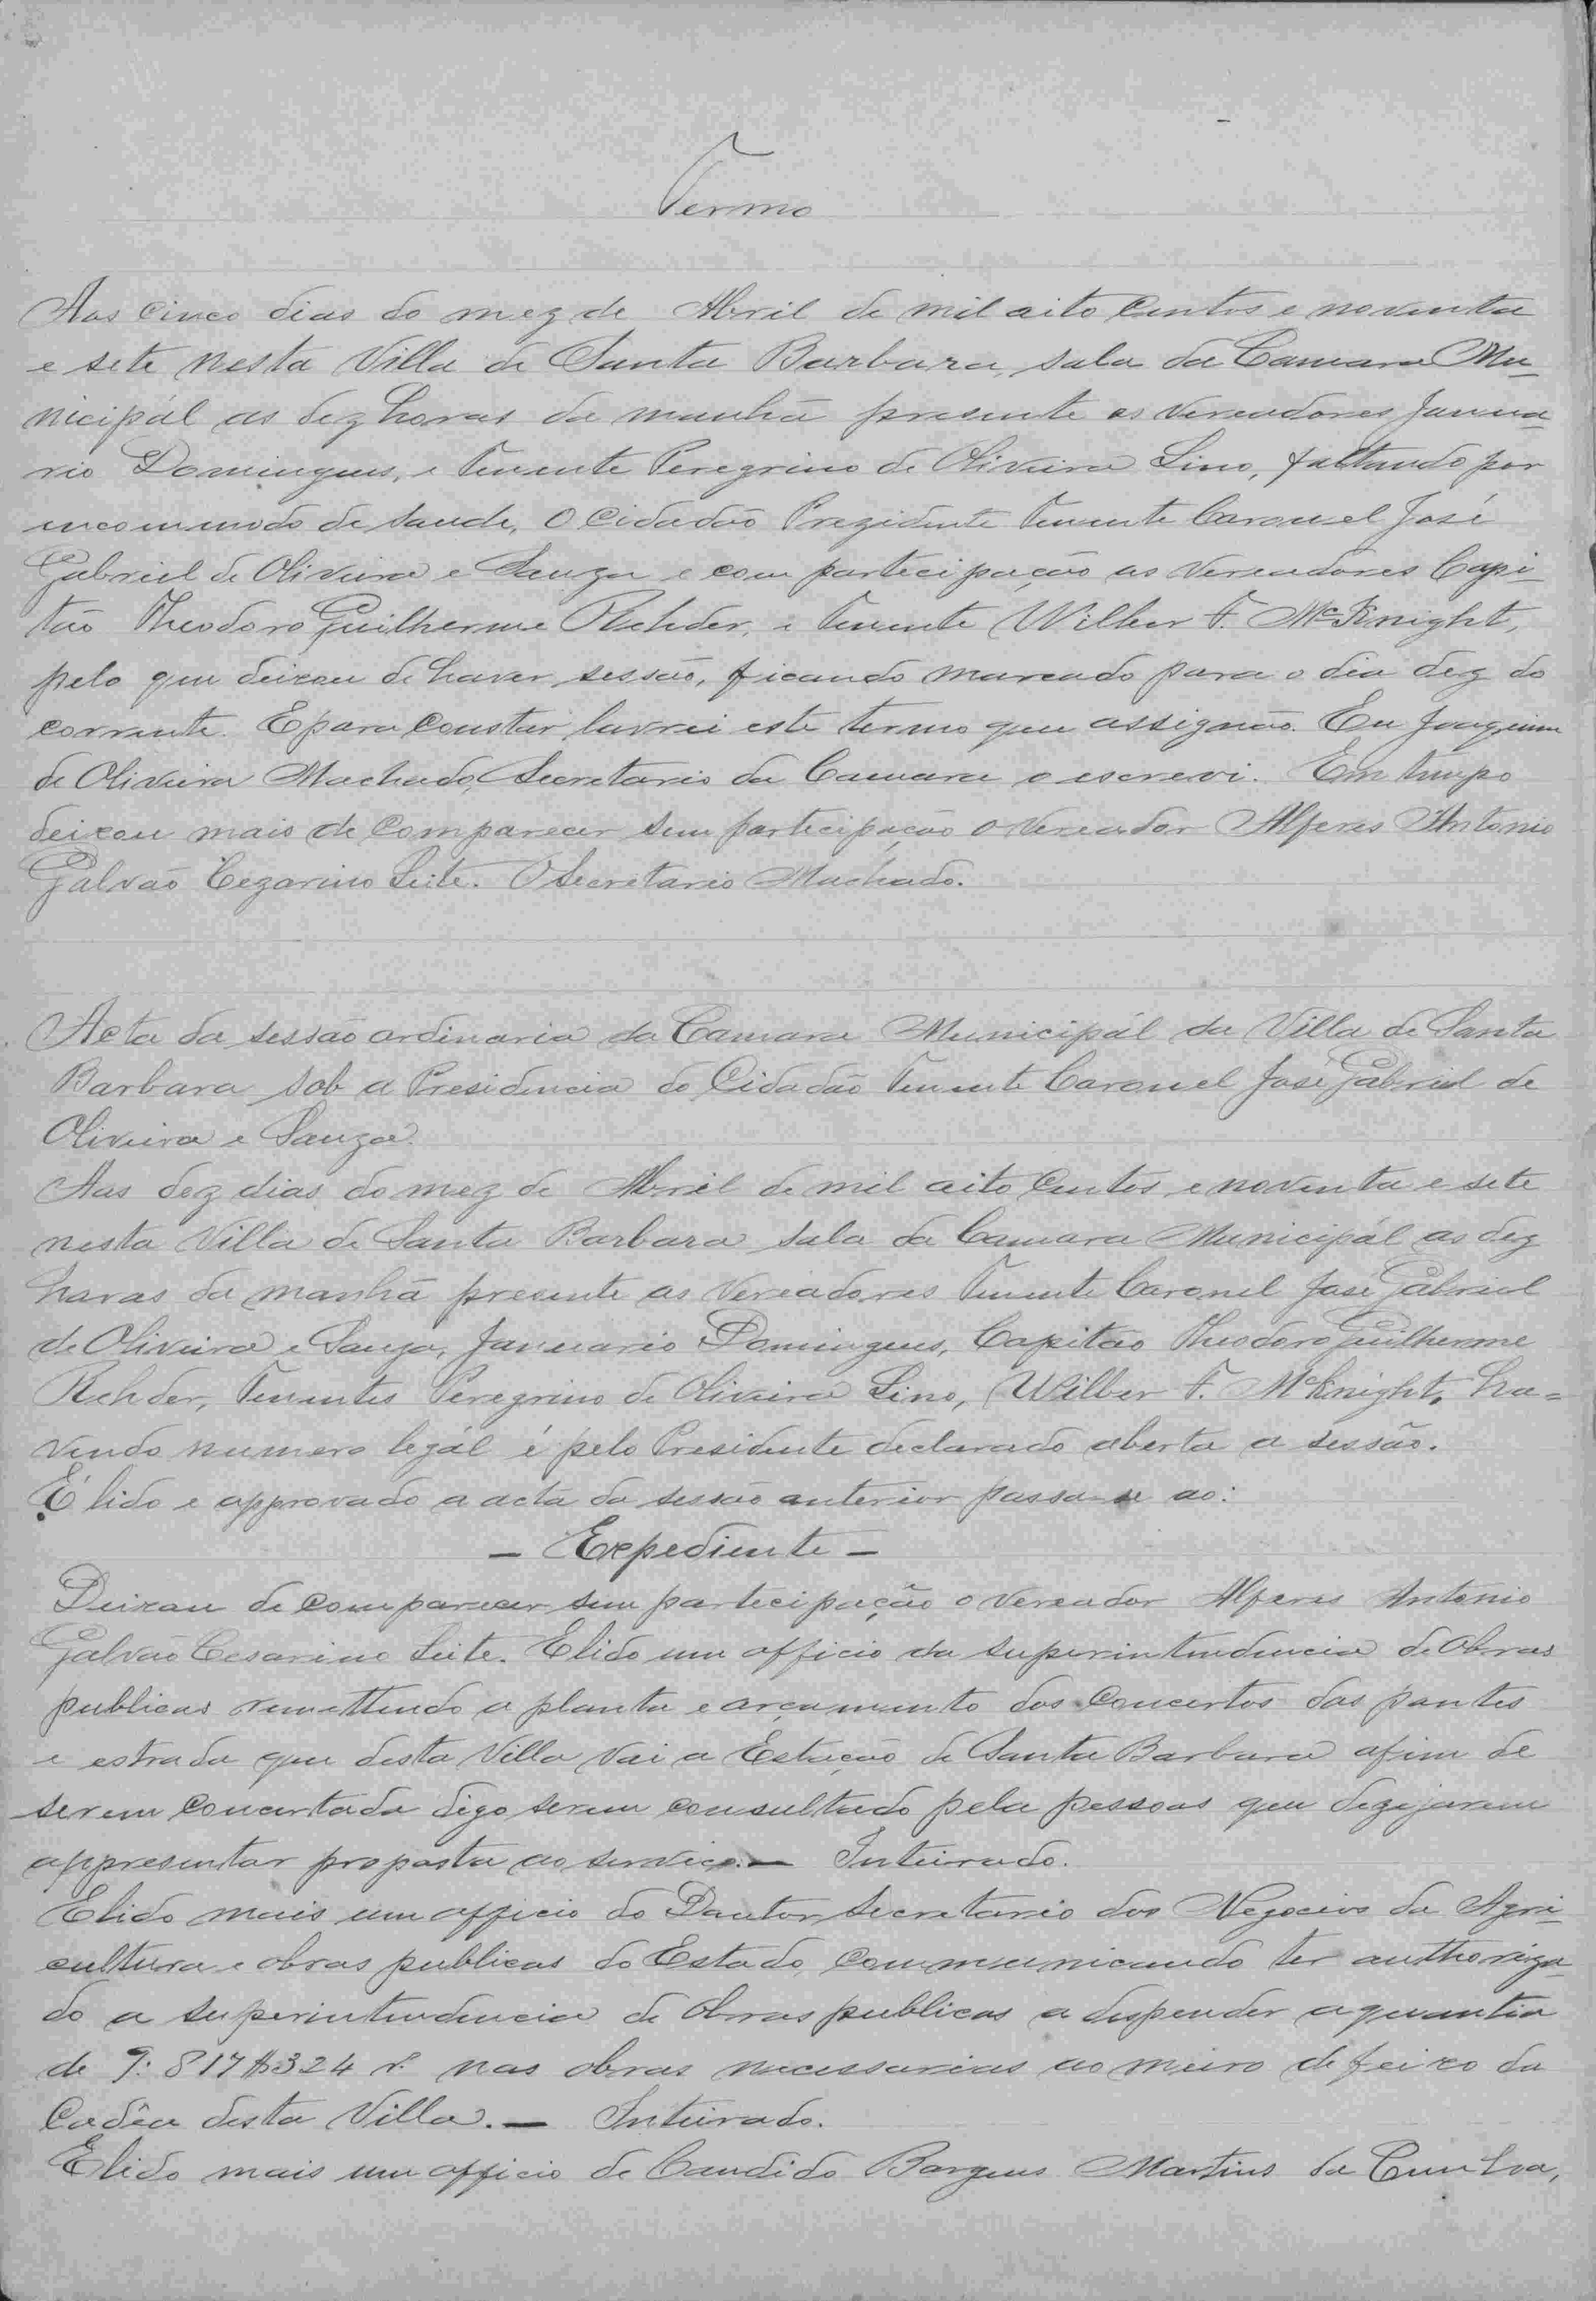 Termo
Aos cinco dias do mez de Abril de mil oito centos e noventa
e sete nesta Villa de Santa Barbara, sala da Camara Mu-
nicipál as dez horas da manhã presente os Vereadores Janua-
rio Domingues, e Tenente Peregrino de Oliveira Lino, faltando por
incommodo de saude, O Cidadão Prezidente Tenente Coronel José
Gabriel de Oliveira e Souza e com participação os Vereadores Capi-
tão Theodoro Guilherme Rehder, e Tenente Wilber F. McKnight,
pelo que deixou de haver sessão, ficando marcado para o dia dez do
corrente. E para constar lavrei este termo que assignão. Eu Joaquim
de Oliveira Machado, Secretario da Camara o escrevi. Em tempo
deixou mais de comparecer sem participação o Vereador Alferes Antonio
Galvão Cezarino Leite. O Secretario Machado.
Acta da sessão ordinaria da Camara Municipál da Villa de Santa
Barbara sob a Presidencia do Cidadão Tenente Coronel José Gabriel de
Oliveira e Souza.
Aos dez dias do mez de Abril de mil oito centos e noventa e sete
nesta Villa de Santa Barbara sala da Camara Municipál as dez
horas da manhã presente os Vereadores Tenente Coronel José Gabriel
de Oliveira e Souza, Januario Domingues, Capitão Theodoro Guilherme
Rehder, Tenentes Peregrino de Oliveira Lino, Wilber F. McKnight, ha=
vendo numero legál é pelo Presidente declarado aberta a sessão.
É lido e approvado a acta da sessão anterior passa-se ao:
- Expediente -
Deixou de comparecer sem participação o Vereador Alferes Antonio
Galvão Cesarino Leite. E lido um officio da superintendencia de Obras
publicas remettendo a planta e orçamento dos concertos das pontes
e estrada que desta Villa vai a Estação de Santa Barbara afim de
serem concertada digo serem consultado pela pessoas que dezejarem
appresentar proposta ao serviço. — Inteirado.
E lido mais um officio do Doutor Secretario dos Negocios da Agri-
cultura e obras publicas do Estado, communicando ter authoriza-
do a superintendencia de Obras publicas a dispender a quantia
de 9:817$324 r. nas obras necessarias ao muro de feixo da
Cadêa desta Villa. — Inteirado.
E lido mais um officio de Candido Borges Martins da Cunha,